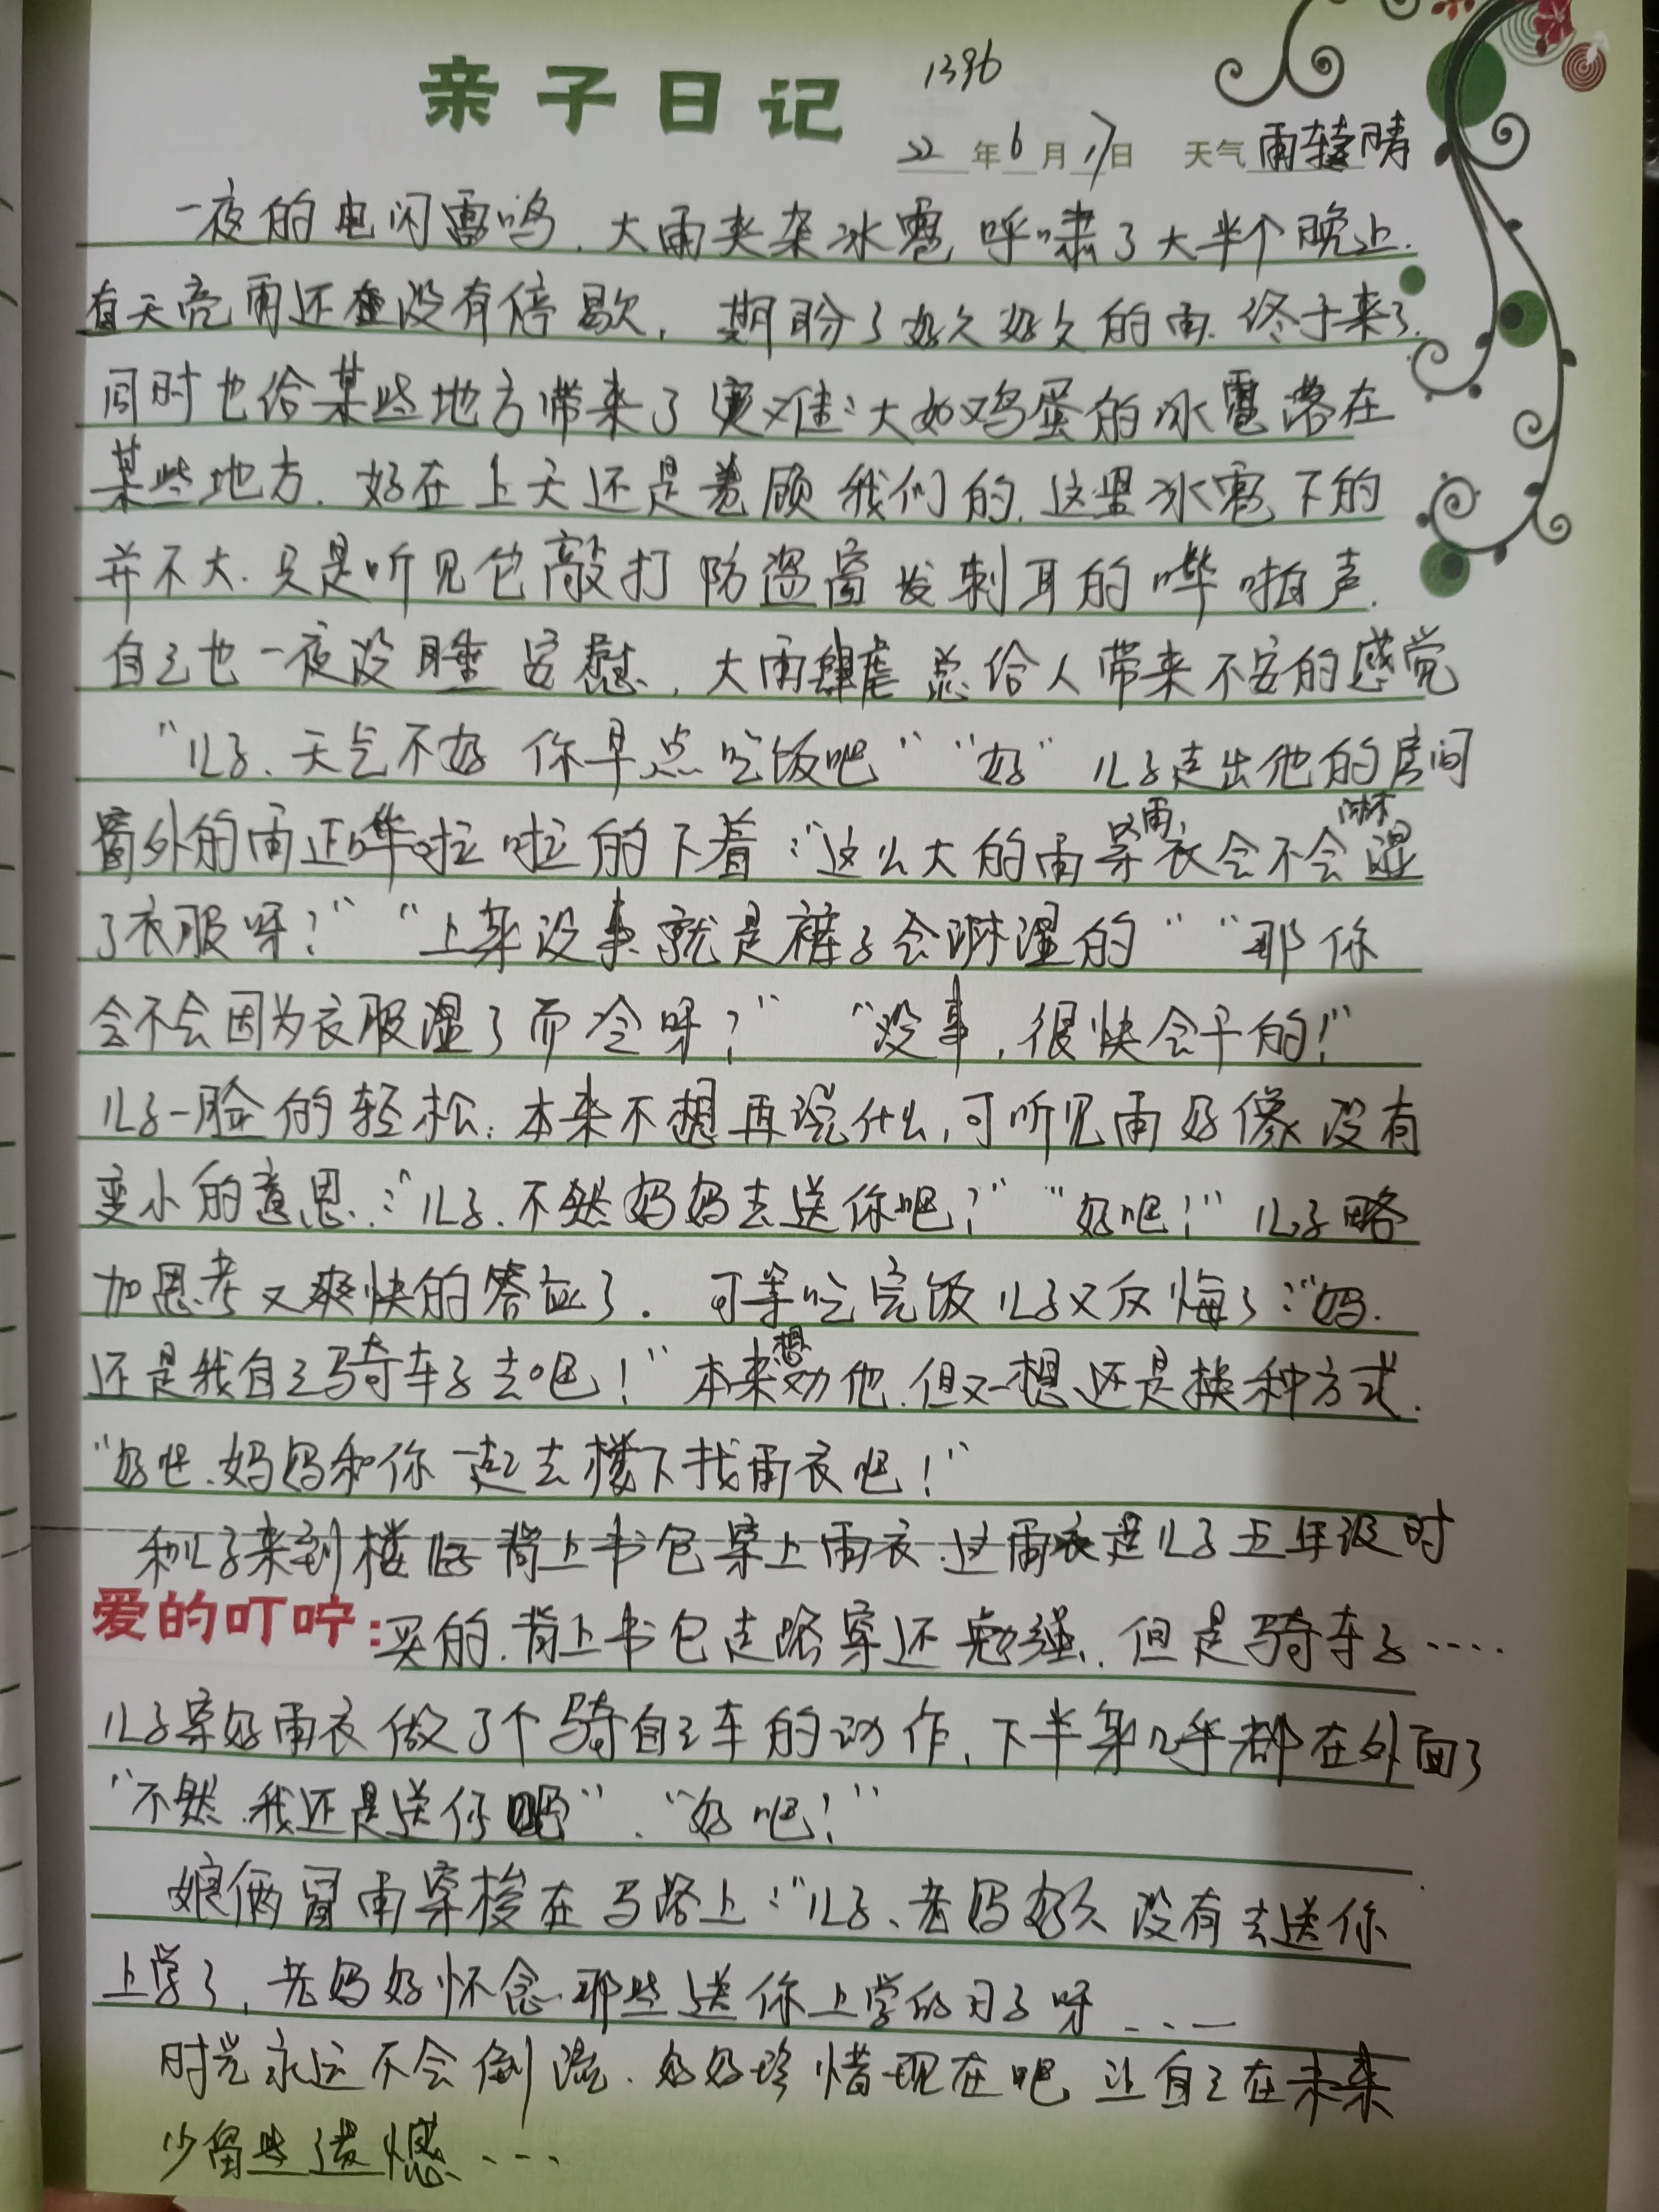 亲子日记 1396
22年6月17日 天气 雨转晴
一夜的电闪雷鸣，大雨夹杂冰雹呼啸了大半个晚上.
天亮雨还没有停歇，期盼了好久好久的雨.终于来了.
同时也给某些地方带来了灾难:大如鸡蛋的冰雹落在
某些地方.好在上天还是眷顾我们的.这里冰雹下的
并不大.只是听见它敲打防盗窗发刺耳的哗啪声.
自己也一夜没睡安慰，大雨肆虐总给人带来不安的感觉
“儿子、天气不好 你早点吃饭吧”“好”儿子走出他的房间
窗外的雨正哗啦啦的下着:“这么大的雨穿雨衣会不会淋湿
了衣服呀？”“上身没事就是裤子会淋湿的”“那你
会不会因为衣服湿了而冷呀？”“没事，很快会干的!”
儿子一脸的轻松:本来不想再说什么,可听见雨好像没有
变小的意思.:“儿子.不然妈妈去送你吧？”“好吧！”儿子略
加思考又爽快的答应了. 可等吃完饭儿子又反悔了:“妈.
还是我自己骑车子去吧！”本来想劝他.但又一想还是换种方式.
“好吧.妈妈和你一起去楼下找雨衣吧！”
和儿子来到楼 背上书包穿上雨衣.这雨衣是儿子五年级时
爱的叮咛:买的.背上书包走路穿还勉强.但是骑车子....
儿子穿好雨衣做了个骑自己车的动作，下半身几乎都在外面了
“不然.我还是送你吧”.“好吧！”
娘俩冒雨穿梭在马路上:“儿子、老妈好久没有去送你
上学了，老妈好怀念那些送你上学的日子呀...
时光永远不会倒流.好好珍惜现在吧 让自己在未来
少留些遗憾...